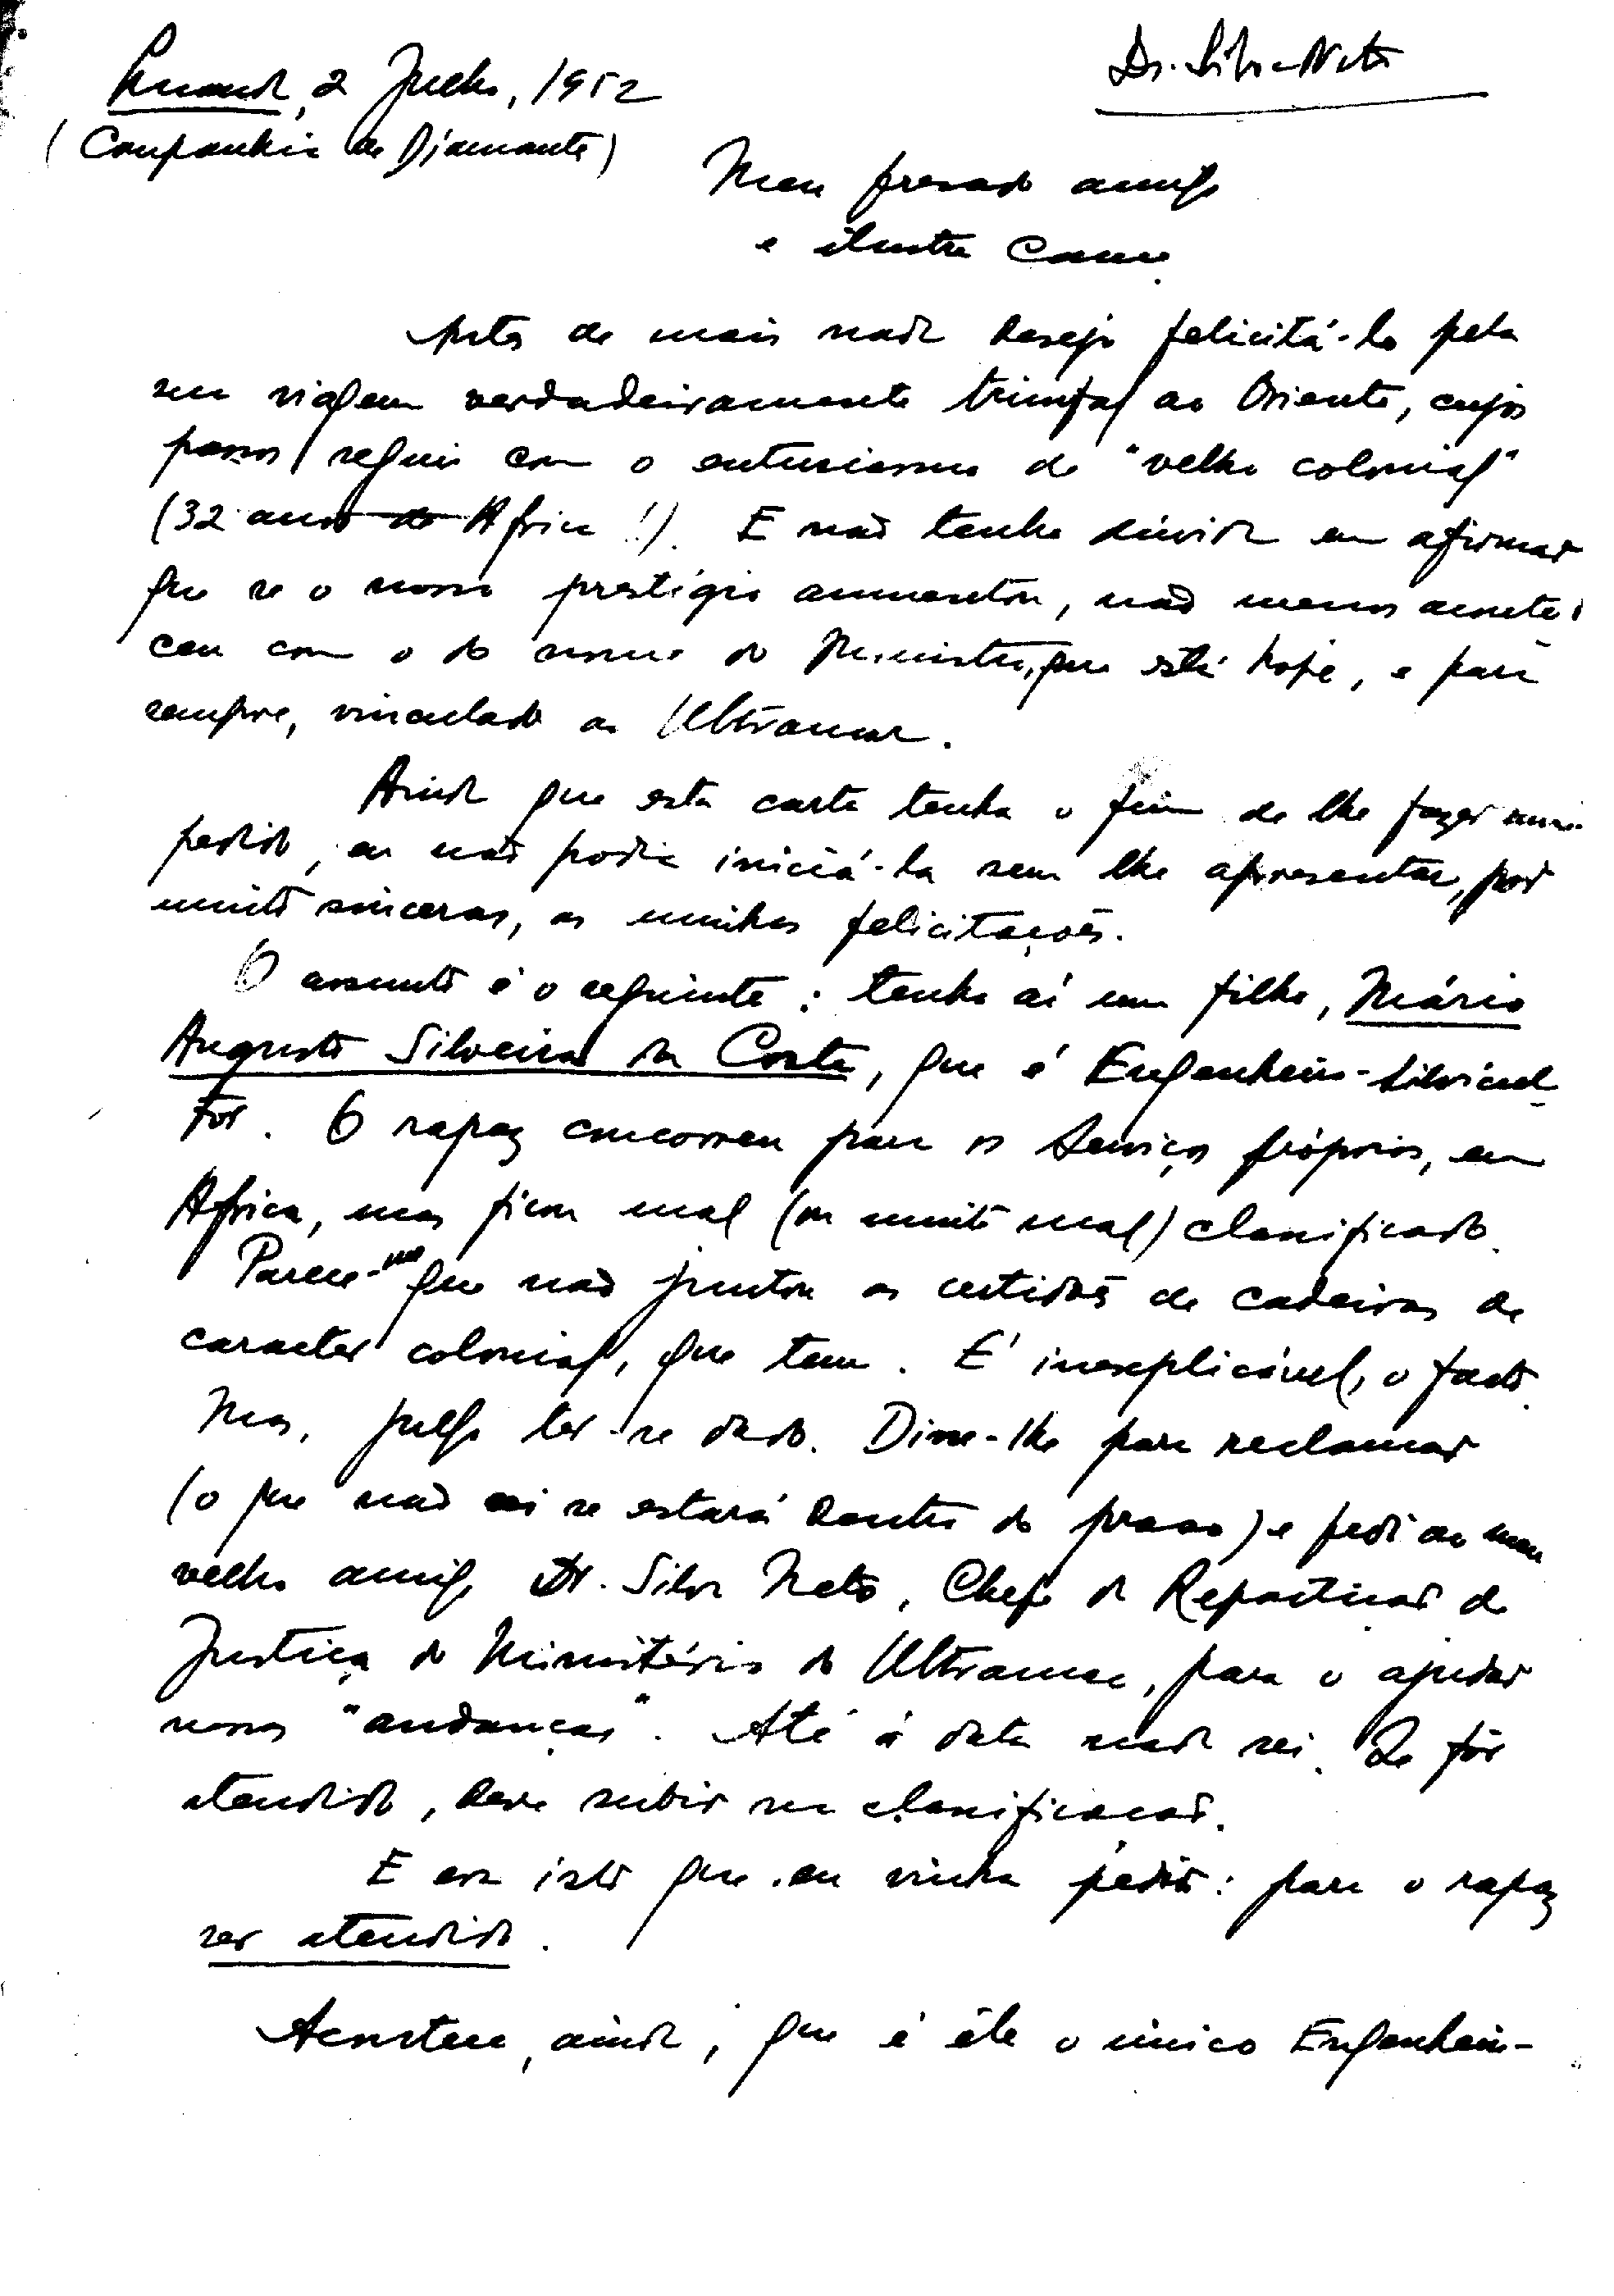 Luanda, 2 Julho, 1952
Dr. Silva Neto
(Companhia de Diamantes)
Meu presado amigo
e ilustre
Antes de mais nada desejo felicitá-lo pela
sua viagem verdadeiramente triunfal ao Oriente, cujos
passos segui com o entusiasmo de "velho colonial"
(32 anos de Africa!). E não tenho dúvida em afirmar
que se o nosso prestígio aumentou, não menos aconte-
ceu com o do nome do Ministro, que está hoje, e para
sempre, vinculado ao Ultramar.
Ainda que esta carta tenha o fim de lhe fazer um
pedido, eu não podia iniciá-la sem lhe apresentar, por
muito sinceras, as minhas felicitações.
O assunto é o seguinte: tenho aí um filho, Mário
Augusto Silveira da Costa, que é Engenheiro-Silvicul
tor. O rapaz concorreu para os Serviços próprios, em
Africa, mas ficou mal (ou muito mal) classificado.
Parece-me que não juntou as certidões de cadeiras de
caracter colonial, que tem. É inexplicável, o facto.
Mas, julgo ter-se dado. Disse-lhe para reclamar
(o que não sei se estará dentro do praso) e pedi ao meu
velho amigo Dr. Silva Neto, Chefe da Repartição de
Justiça do Ministério do Ultramar, para o ajudar
nessas "andanças". Até à data nada sei. Se fôr
atendido, deve subir na classificação.
E era isto que eu vinha pedir: para o rapaz
ser atendido.
Acontece, ainda, que é êle o único Engenheiro-